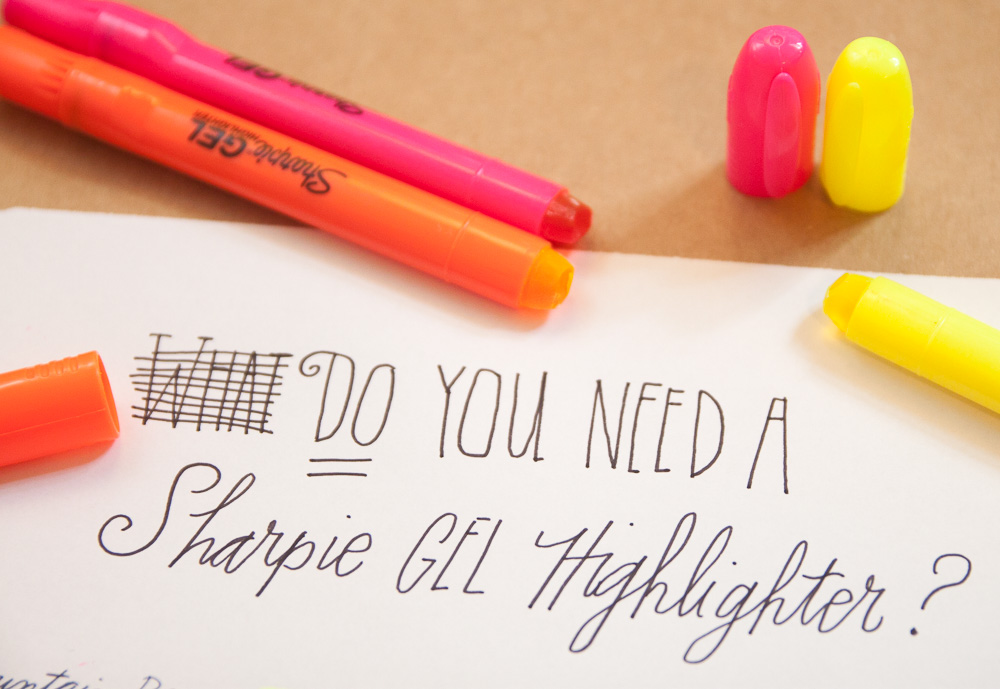 Sharpie GEL
Sharpie GEL HIGHLIGHTER
WHAT DO YOU NEED A
Sharpie GEL Highlighter?